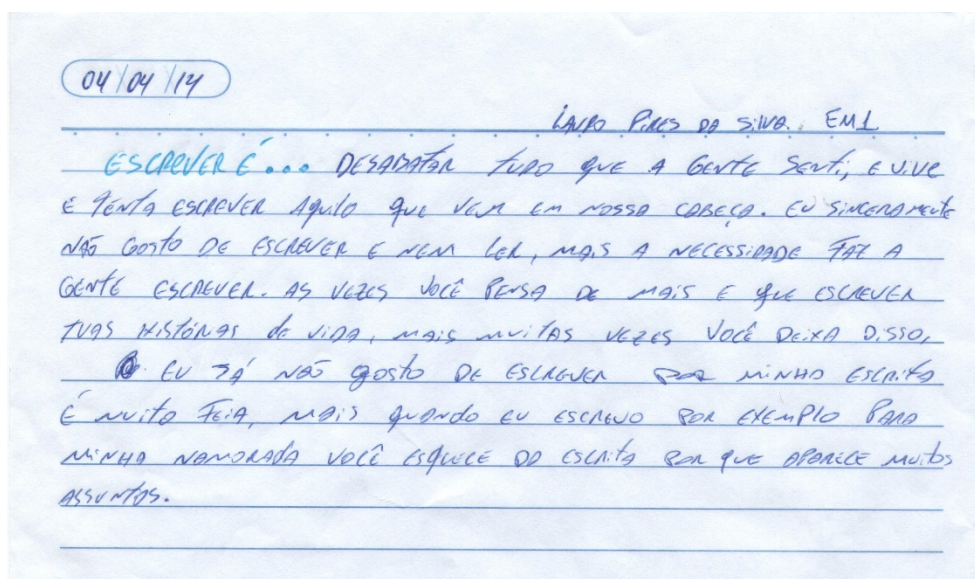 04/04/14
LAURO PIRES DA SILVA. EM1
ESCREVER É... DESABATAR TUDO QUE A GENTE SENTI, E VIVE
E TENTA ESCREVER AQUILO QUE VEM EM NOSSA CABEÇA. EU SINCERAMENTE
NÃO GOSTO DE ESCREVER E NEM LER, MAIS A NECESSIDADE FAZ A
GENTE ESCREVER. AS VEZES VOCÊ PENSA DE MAIS E QUE ESCREVER
TUAS HISTÓRIAS de VIDA, MAIS MUITAS VEZES VOCÊ DEIXA DISSO,
EU JÁ NÃO GOSTO DE ESCREVER POR MINHA ESCRITA
É MUITO FEIA, MAIS QUANDO EU ESCREVO POR EXEMPLO PARA
MINHA NAMORADA VOCÊ ESQUECE DA ESCRITA POR QUE APARECE MUITOS
ASSUNTOS.